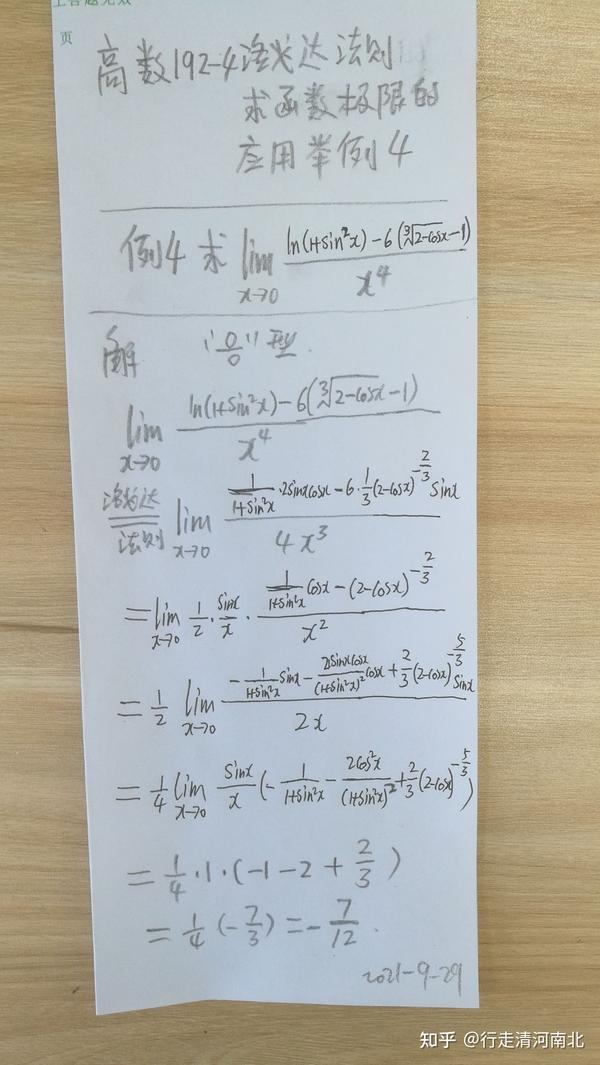 页
高数192-4洛必达法则
求函数极限的
应用举例4
例4 求 lim x→0 (ln(1+sin²x)-6(∛(2-cosx)-1))/x⁴
解 "0/0"型.
lim x→0 (ln(1+sin²x)-6(∛(2-cosx)-1))/x⁴
洛必达法则 lim x→0 (1/(1+sin²x)·2sinxcosx-6·1/3(2-cosx)^(-2/3)sinx)/4x³
=lim x→0 1/2·sinx/x·(1/(1+sin²x)cosx-(2-cosx)^(-2/3))/x²
=1/2 lim x→0 (-1/(1+sin²x)sinx-2sinxcosx/(1+sin²x)²cosx+2/3(2-cosx)^(-5/3)sinx)/2x
=1/4 lim x→0 sinx/x(-1/(1+sin²x)-2cos²x/(1+sin²x)²+2/3(2-cosx)^(-5/3))
=1/4·1·(-1-2+2/3)
=1/4(-7/3)=-7/12.
2021-9-29
知乎 @行走清河南北